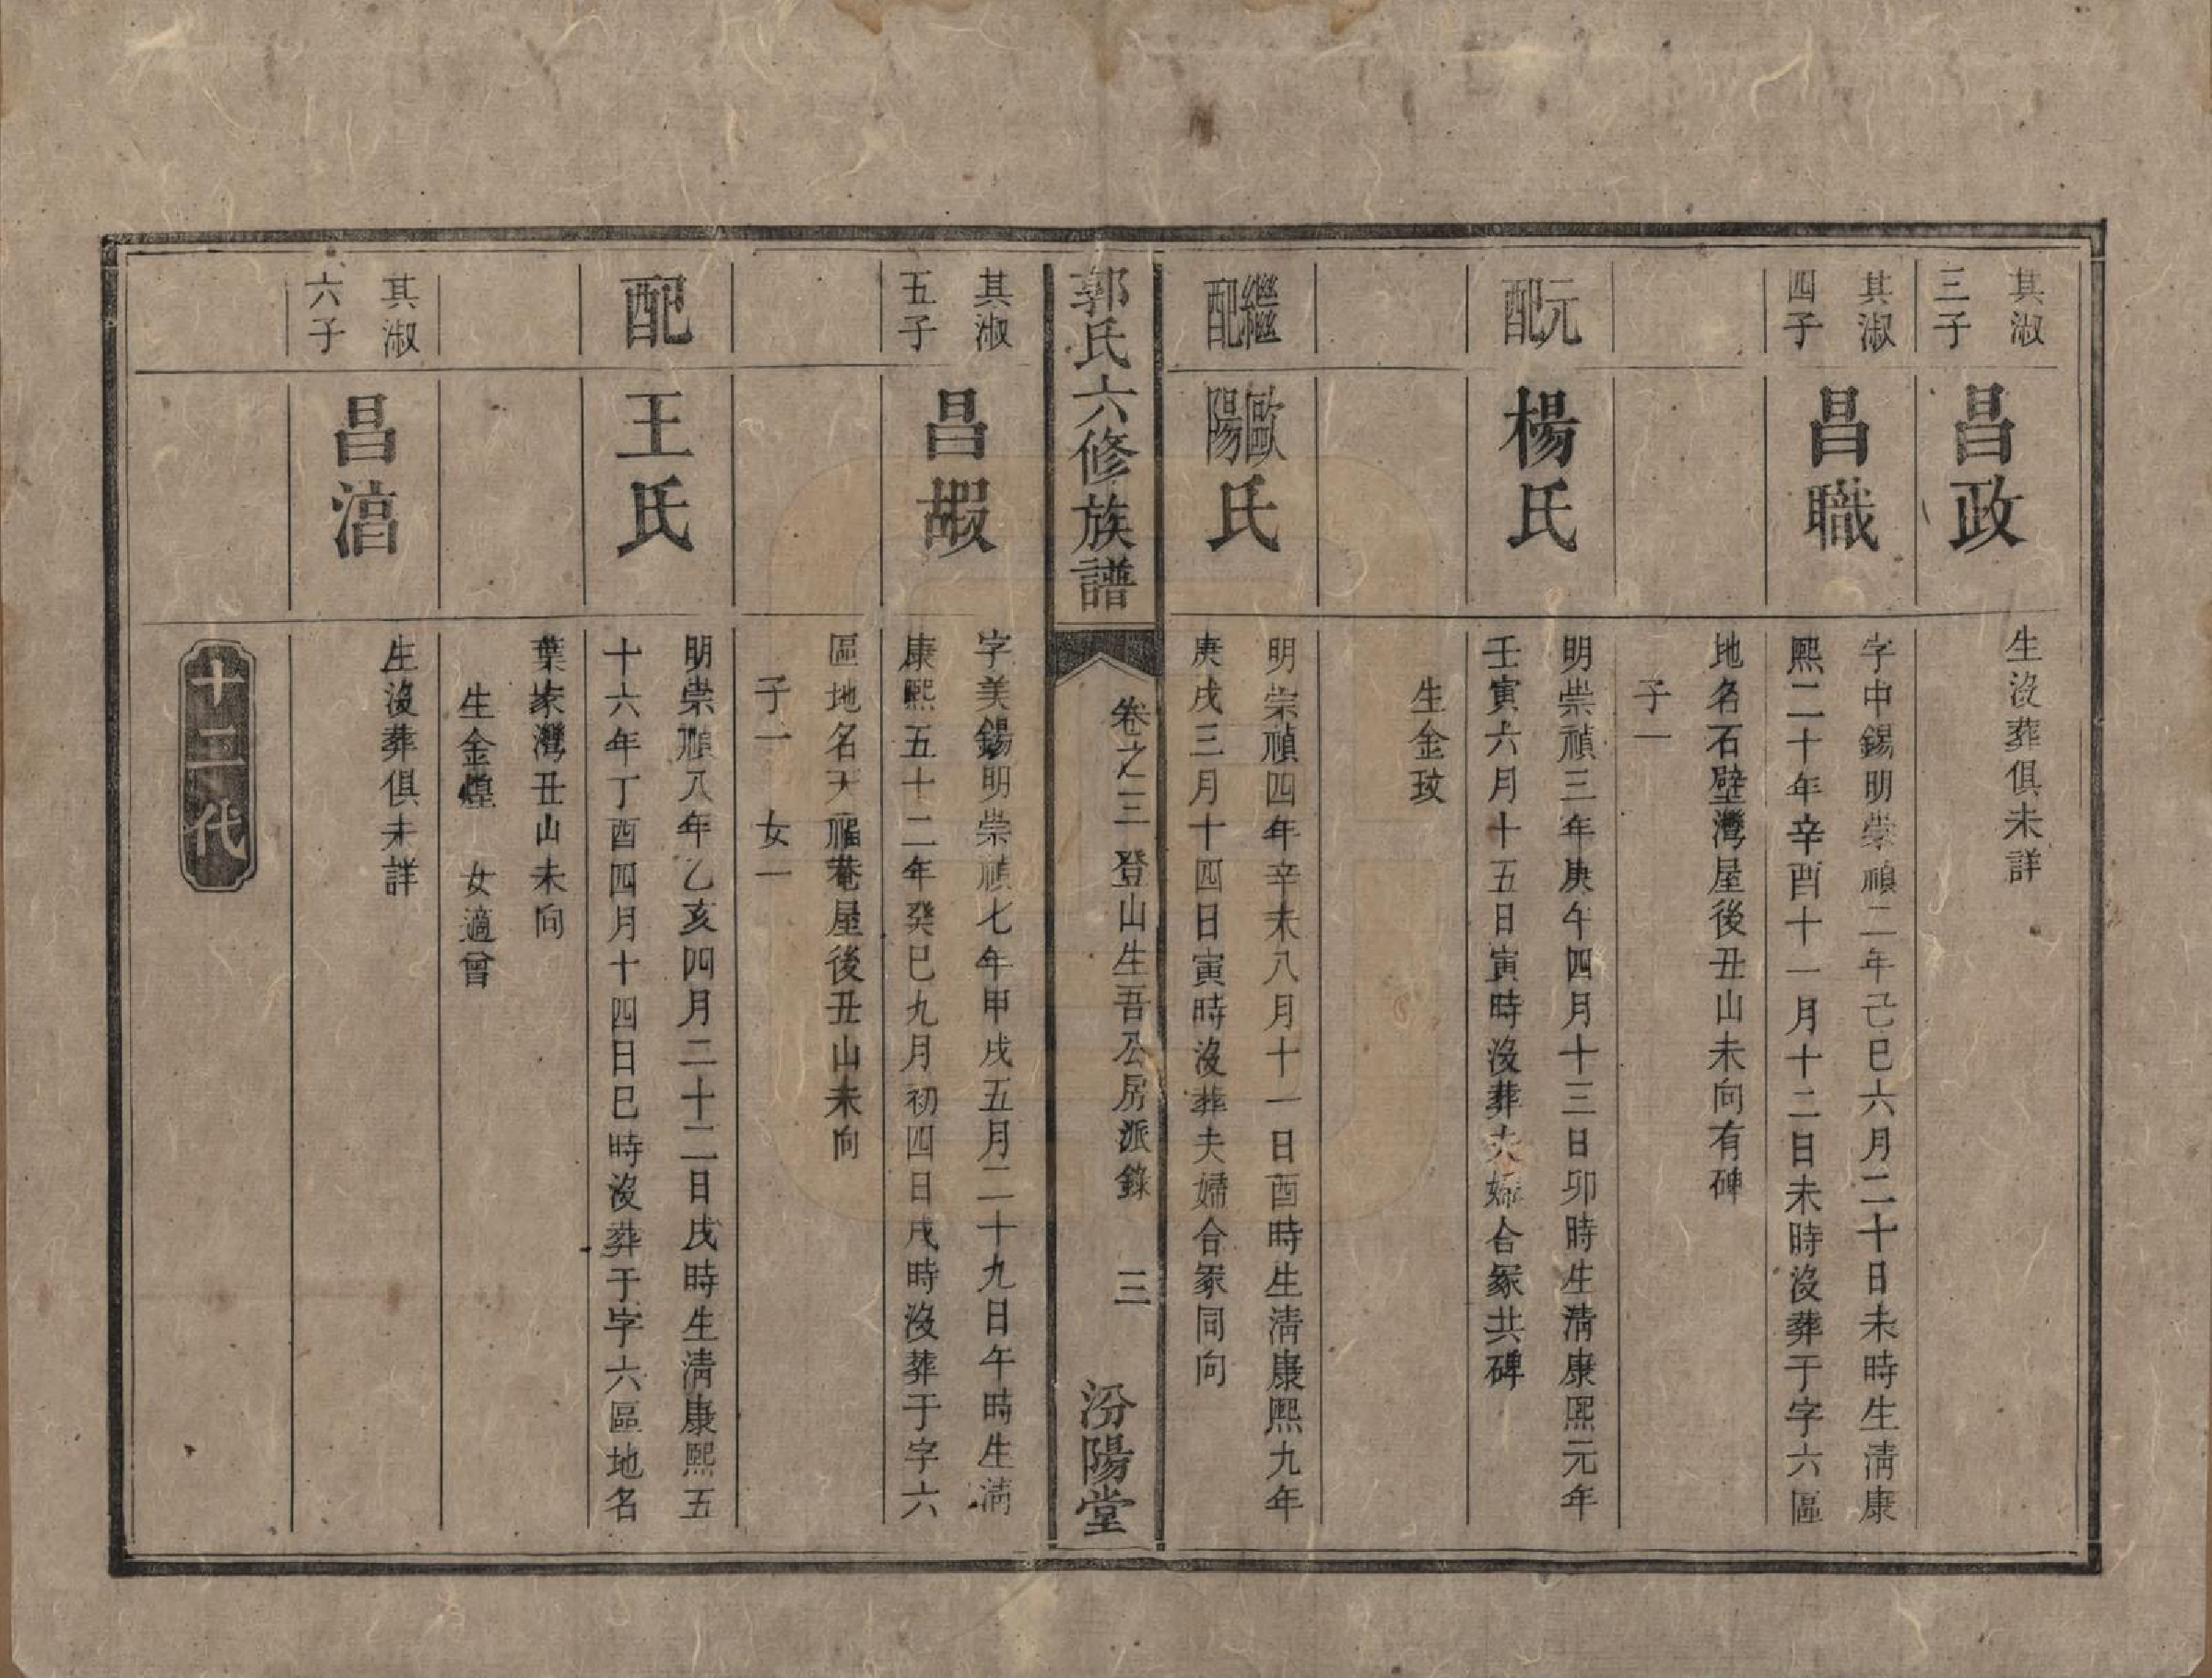 其淑
三子
昌政
生沒葬俱未詳
其淑
四子
昌職
字中錫明崇禎二年己巳六月二十日未時生清康
熙二十年辛酉十一月十二日未時沒葬于字六區
地名石壁灣屋後丑山未向有碑
子一
元配
楊氏
明崇禎三年庚午四月十三日卯時生清康熙元年
壬寅六月十五日寅時沒葬夫婦合冢共碑
生金玟
繼配
歐陽氏
明崇禎四年辛未八月十一日酉時生清康熙九年
庚戌三月十四日寅時沒葬夫婦合冢同向
郭氏六修族譜
卷之三 登山生吾公房派錄 三
汾陽堂
其淑
五子
昌嘏
字美錫明崇禎七年甲戌五月二十九日午時生清
康熙五十二年癸巳九月初四日戌時沒葬于字六
區地名天福菴屋後丑山未向
子一 女一
配
王氏
明崇禎八年乙亥四月二十二日戌時生清康熙五
十六年丁酉四月十四日巳時沒葬于字六區地名
葉家灣丑山未向
生金煌 女適曾
其淑
六子
昌湻
生沒葬俱未詳
十二代